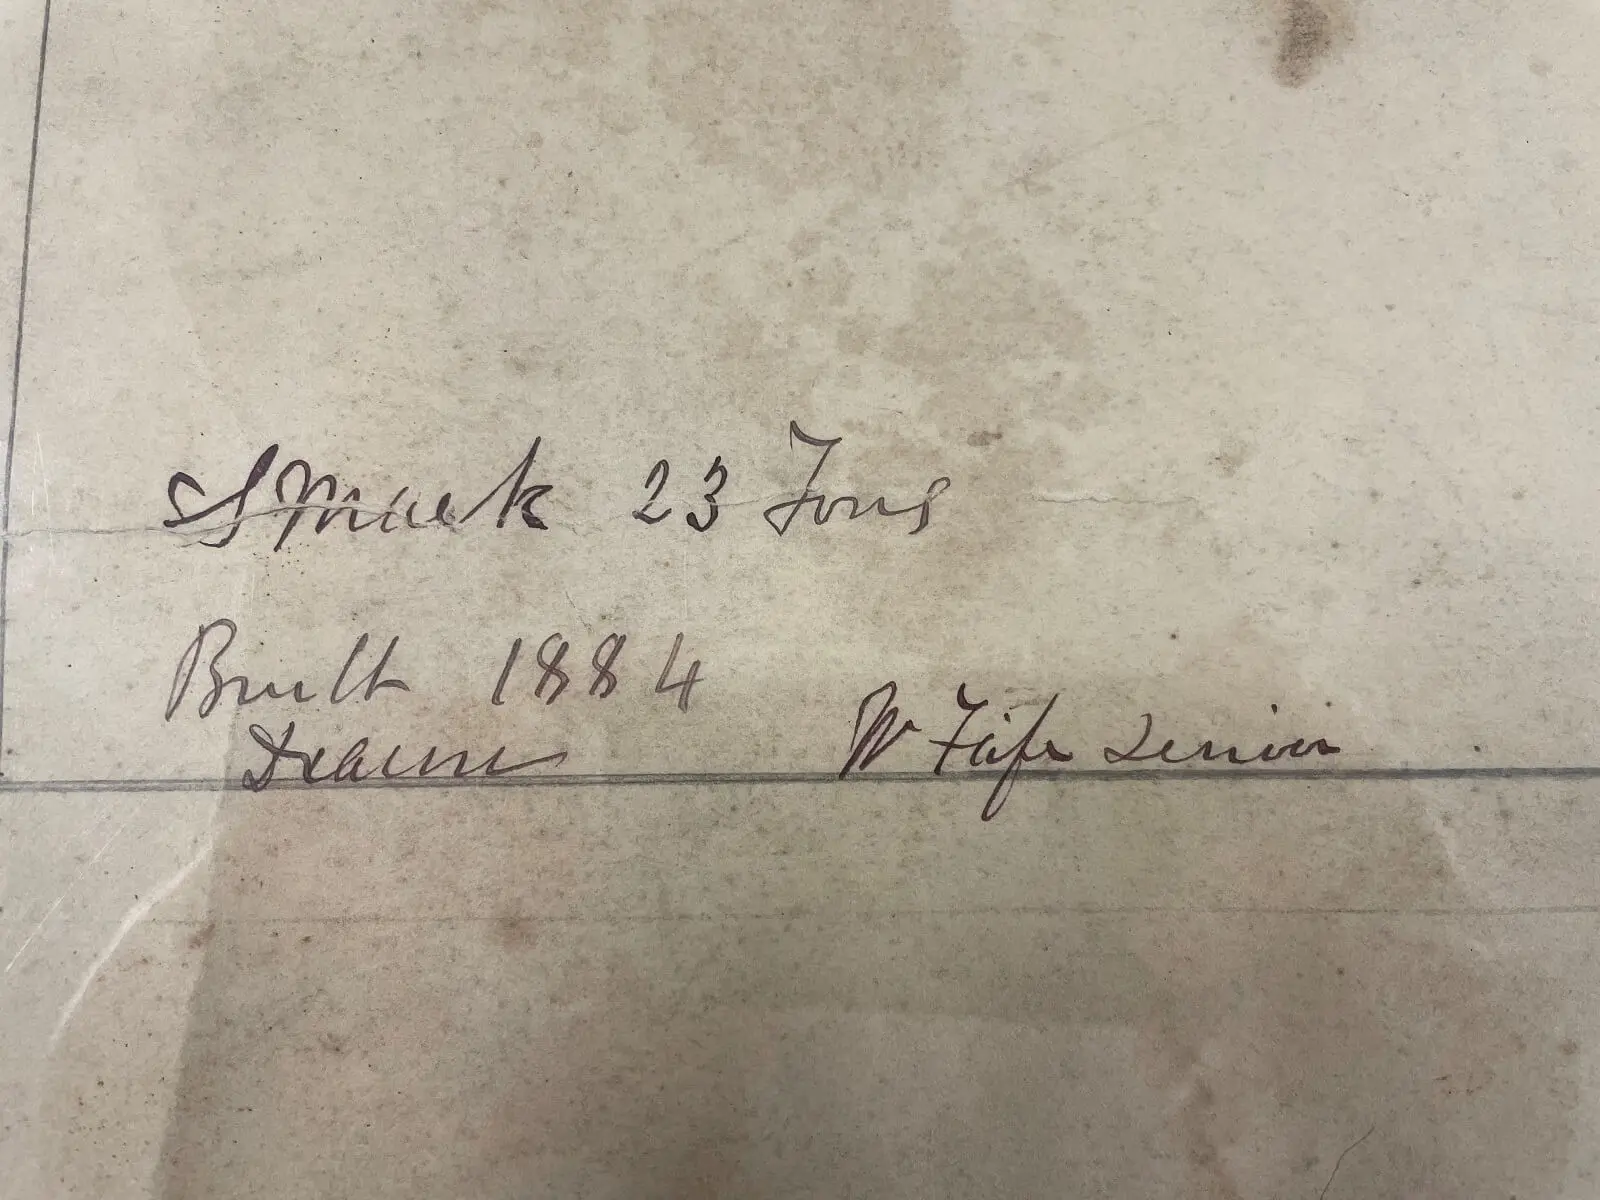 Smack 23 Tons
Built 1884
W Fife Senior